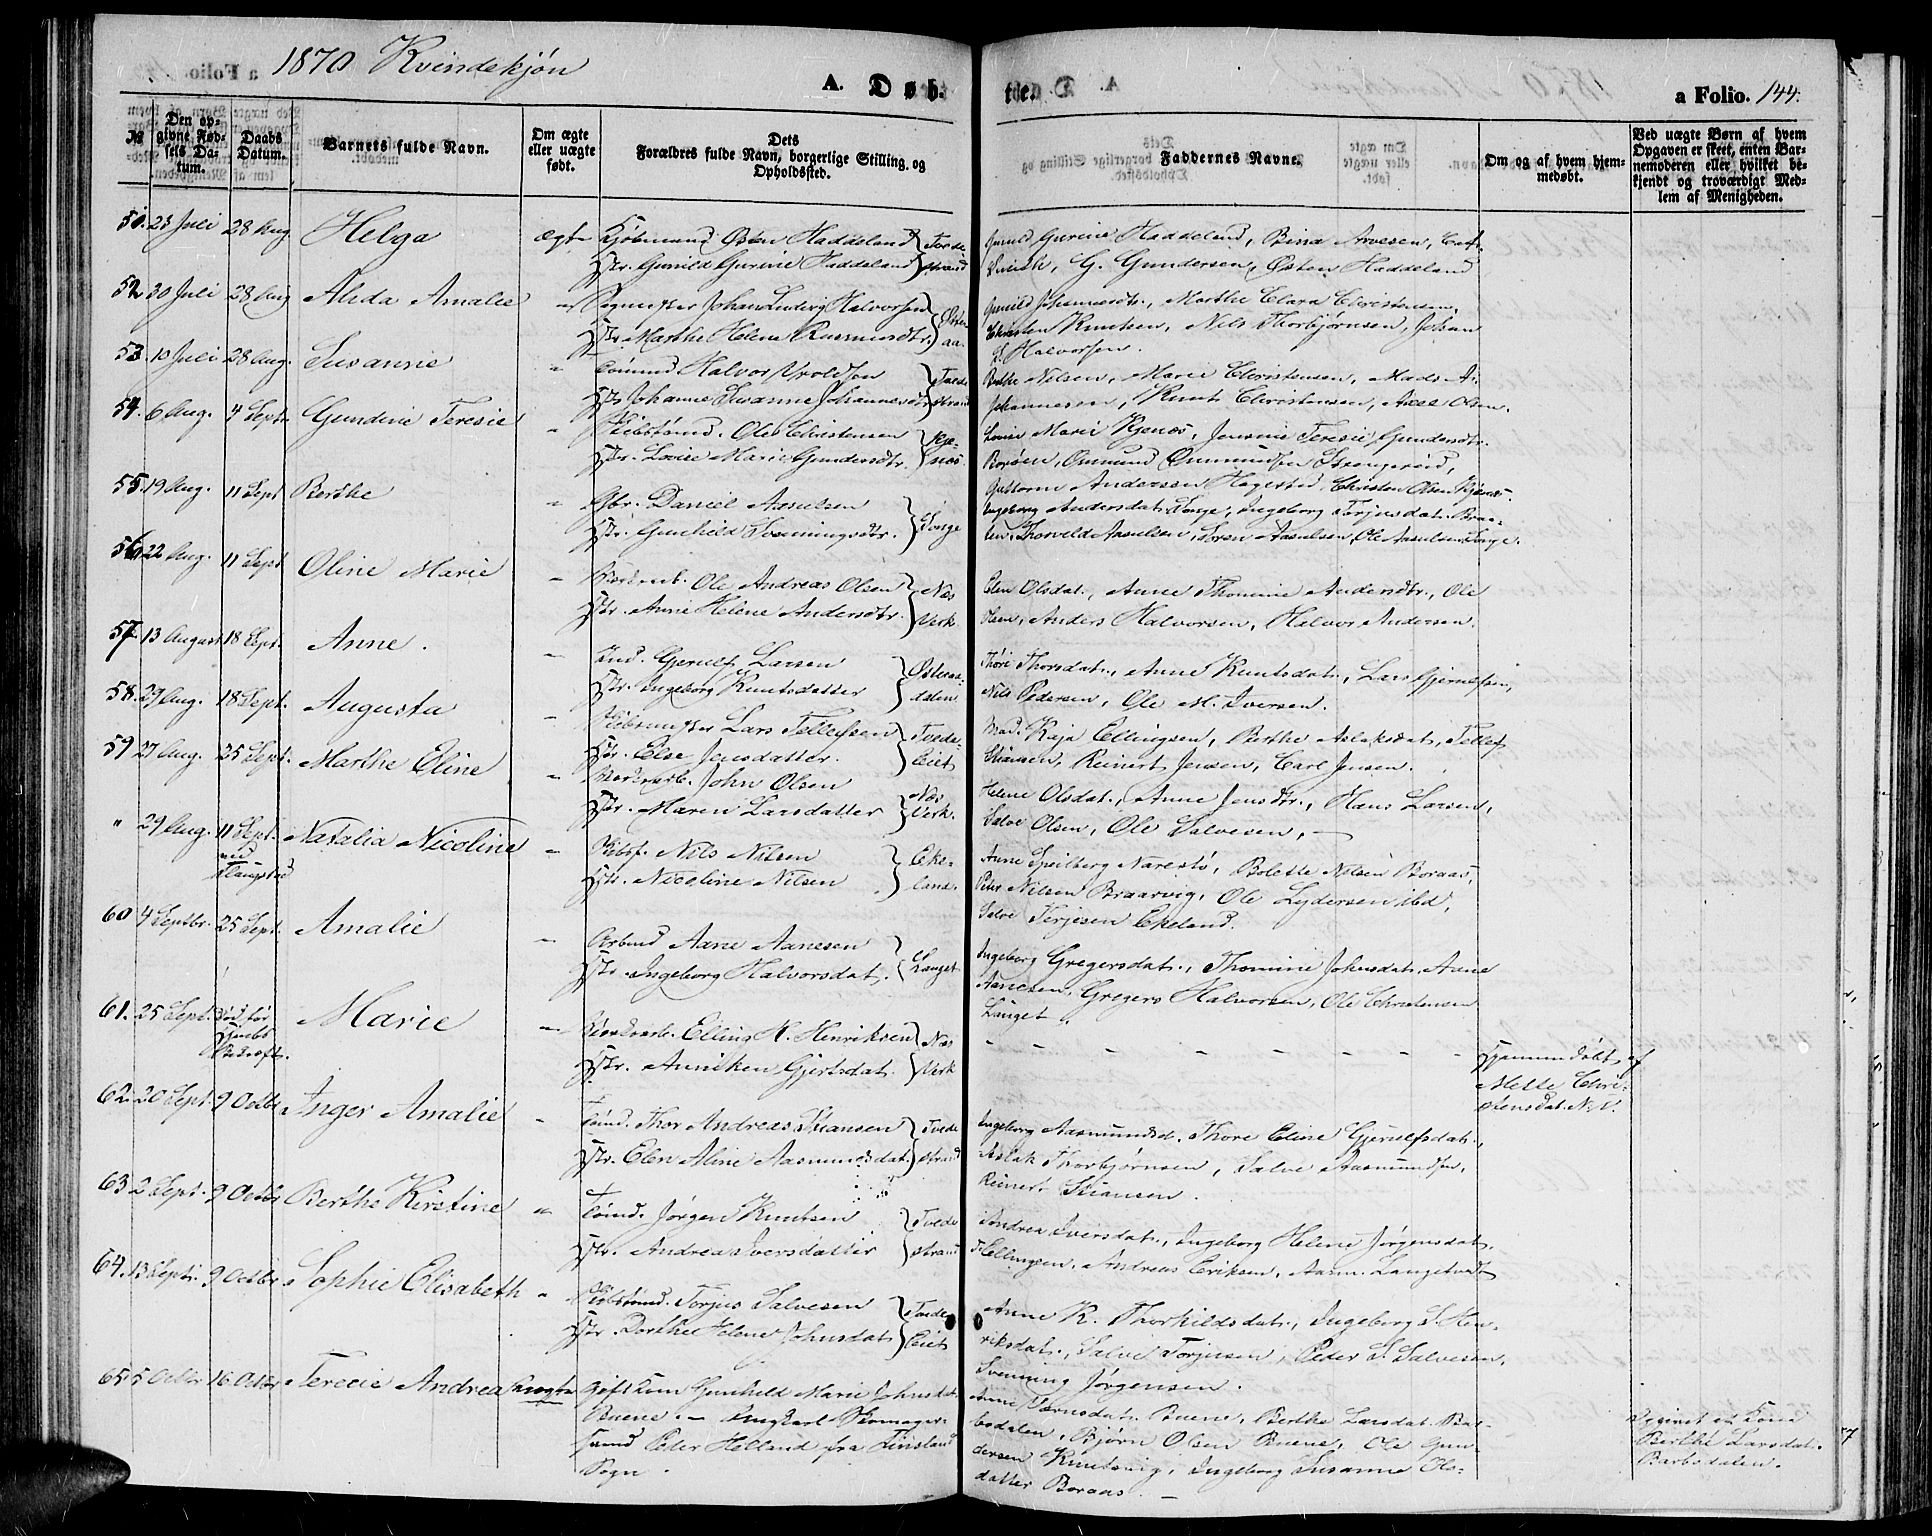 1870 Kvindekjøn
A. Døb-
te.
a Folio. 144.
№
Den op-
givne Fød-
sels Da-
tum.
Daabs
Datum.
Barnets fulde Navn.
Om ægte
eller uægte
født.
Dets
Forældres fulde Navn, borgerlige Stilling, og
Opholdssted.
Faddernes Navne.
Om og af hvem hjem-
medøbt.
Ved uægte Børn af hvem
Opgaven er skeet, enten Bar-
nemoderen eller hvilket be-
kjendt og troværdigt Med-
lem af Menigheden.
51. 23 Juli 28 Aug Helga ægte Kjøbmand Østen Haddeland Tvede-
Hstr. Gunild Gurine Haddeland strand
Gunild Gurine Haddeland, Bina Arvesen,
G. Gundersen, Østen Haddeland
52 30 Juli 28 Aug Alida Amalie " Johan Ludvig Halvorsen Østen-
Hstr. Marthe Helene Rasmusdtr. aa.
Gunild Johannesdtr., Marthe Clara Christensen,
Christen Knutsen, Nils Thorbjørnsen, Johan
L. Halvorsen.
53. 10 Juli 28 Aug. Susanne " Halvor Tvede
Hstr Johanne Susanne Johannesdtr strand
Berthe Nilsen, Marie Christensen, Mads A.
Johannesen, Knut Christensen, Axel Olsen.
54. 6 Aug. 4 Sept. Gundine Teresie " Ole Christensen Kje-
Hstr. Lovise Marie Gundersdtr. næs.
Lovise Marie Kjenæs, Jensine Teresie Gundersdtr.
Borøen, Omund Ommundsen Strengereid,
55. 19 Aug. 11 Sept Berthe " Gbr. Daniel Aasulsen Songe
Hstr. Gunhild Sveningsdtr.
Guttorm Andersen Hagestad, Christen Olsen Kjenæs.
Ingeborg Andersdat. Songe, Ingeborg Torjusdat. Braa-
ten, Thorvald Aasulsen, Søren Aasulsen, Ole Aasulsen Songe.
56 22 Aug. 11 Sept Oline Marie " Ole Andreas Olsen Næs
Hstr. Anne Helene Andersdtr. Verk
Elen Olsdat., Anne Thomine Andersdtr., Ole
Olsen, Anders Halvorsen, Halvor Andersen.
57 13 August 18 Sept. Anne. " Ind. Gjerulf Larsen Østeraa-
Hstr. Ingeborg Knutsdatter dalen
Thore Thorsdat., Anne Knutsdat., Lars Gjerulfsen,
Nils Pedersen, Ole M. Iversen.
58. 29 Aug. 18 Sept. Augusta " Lars Tellefsen Tvede-
Hstr. Else Jensdatter. Eiet
Mad. Kaja Ellingsen, Berthe Aslaksdat, Tellef
Stiansen, Reinert Jensen, Carl Jensen.
59 27 Aug. 25 Sept. Marthe Eline " Verksarb. John Olsen Næs
Hstr. Maren Larsdatter Verk.
Helene Olsdat., Anne Jensdtr., Hans Larsen,
Salve Olsen, Ole Salvesen,
" 29 Aug. 11 Sept. Natalia Nicoline " Nils Nilsen Eke-
Hstr. Nicoline Nilsen land.
ved
Flangstad
Anne Speilberg Narestø, Bolette Nilsen Boraas,
Peter Nilsen Braarvig, Ole Lydersen ibd,
Salve Terjesen Ekeland.
60 4 Septbr. 25 Sept. Amalie " Arbmd Aane Aanesen Langet
Hstr. Ingeborg Halvorsdat.
Ingeborg Gregersdat., Thomine Johnsdat, Aane
Aanesen, Gregers Halvorsen, Ole Christensen
Langet
61. 25 Sept. Død før Marie " Verksarb. Elling N. Henriksen Næs
Hstr. Anniken Gjertsdat. Verk
Hjemmedøbt af
Mette Chri-
stensdat. N. V.
62. 20 Sept. 9 Octbr Inger Amalie " Tømd. Thor Andreas Stiansen Tvede
Hstr. Elen Aline Aasmundsdat. strand
Ingeborg Aasmundsd. Thore Eline Gjerulfsdat.,
Aslak Thorbjørnsen, Salve Aasmundsen,
Reinert Stiansen.
63 2 Sept. 9 Octbr Berthe Kirstine " Tømd. Jørgen Knutsen Tvede
Hstr. Andrea Iversdatter strand
Andrea Iversdat., Ingeborg Helene Jørgensdat.,
T. Ellingsen, Andreas Eriksen, Aasm. Langetvedt
64. 13 Sept. 9 Octbr. Sophie Elisabeth " Torjus Salvesen Tvede
Hstr. Dorthe Helene Johnsdat. Eiet
Anne K. Thorkildsdat., Ingeborg S. Hen-
riksdat., Salve Torjusen, Peder S. Salvesen,
Svenning Jørgensen.
65 5 Octbr 16 Octbr Teresie Andrea Uægte gift Kone Gunhild Marie Johnsdat.
Buene. — Ungkarl Skomager-
svend Peder Helland fra Finsland
Sogn.
Anne Bjørnsdat. Buene, Berthe Larsdat. Bar-
bodalen, Bjørn Olsen Buene, Ole Gun-
dersen Knutsvig, Ingeborg Susanne Ols-
datter Boraas. —
Opgivet af Kone
Berthe Larsdat.
Barbodalen.